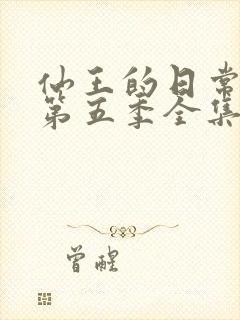 仙王的日常
第五季全集
曾醒